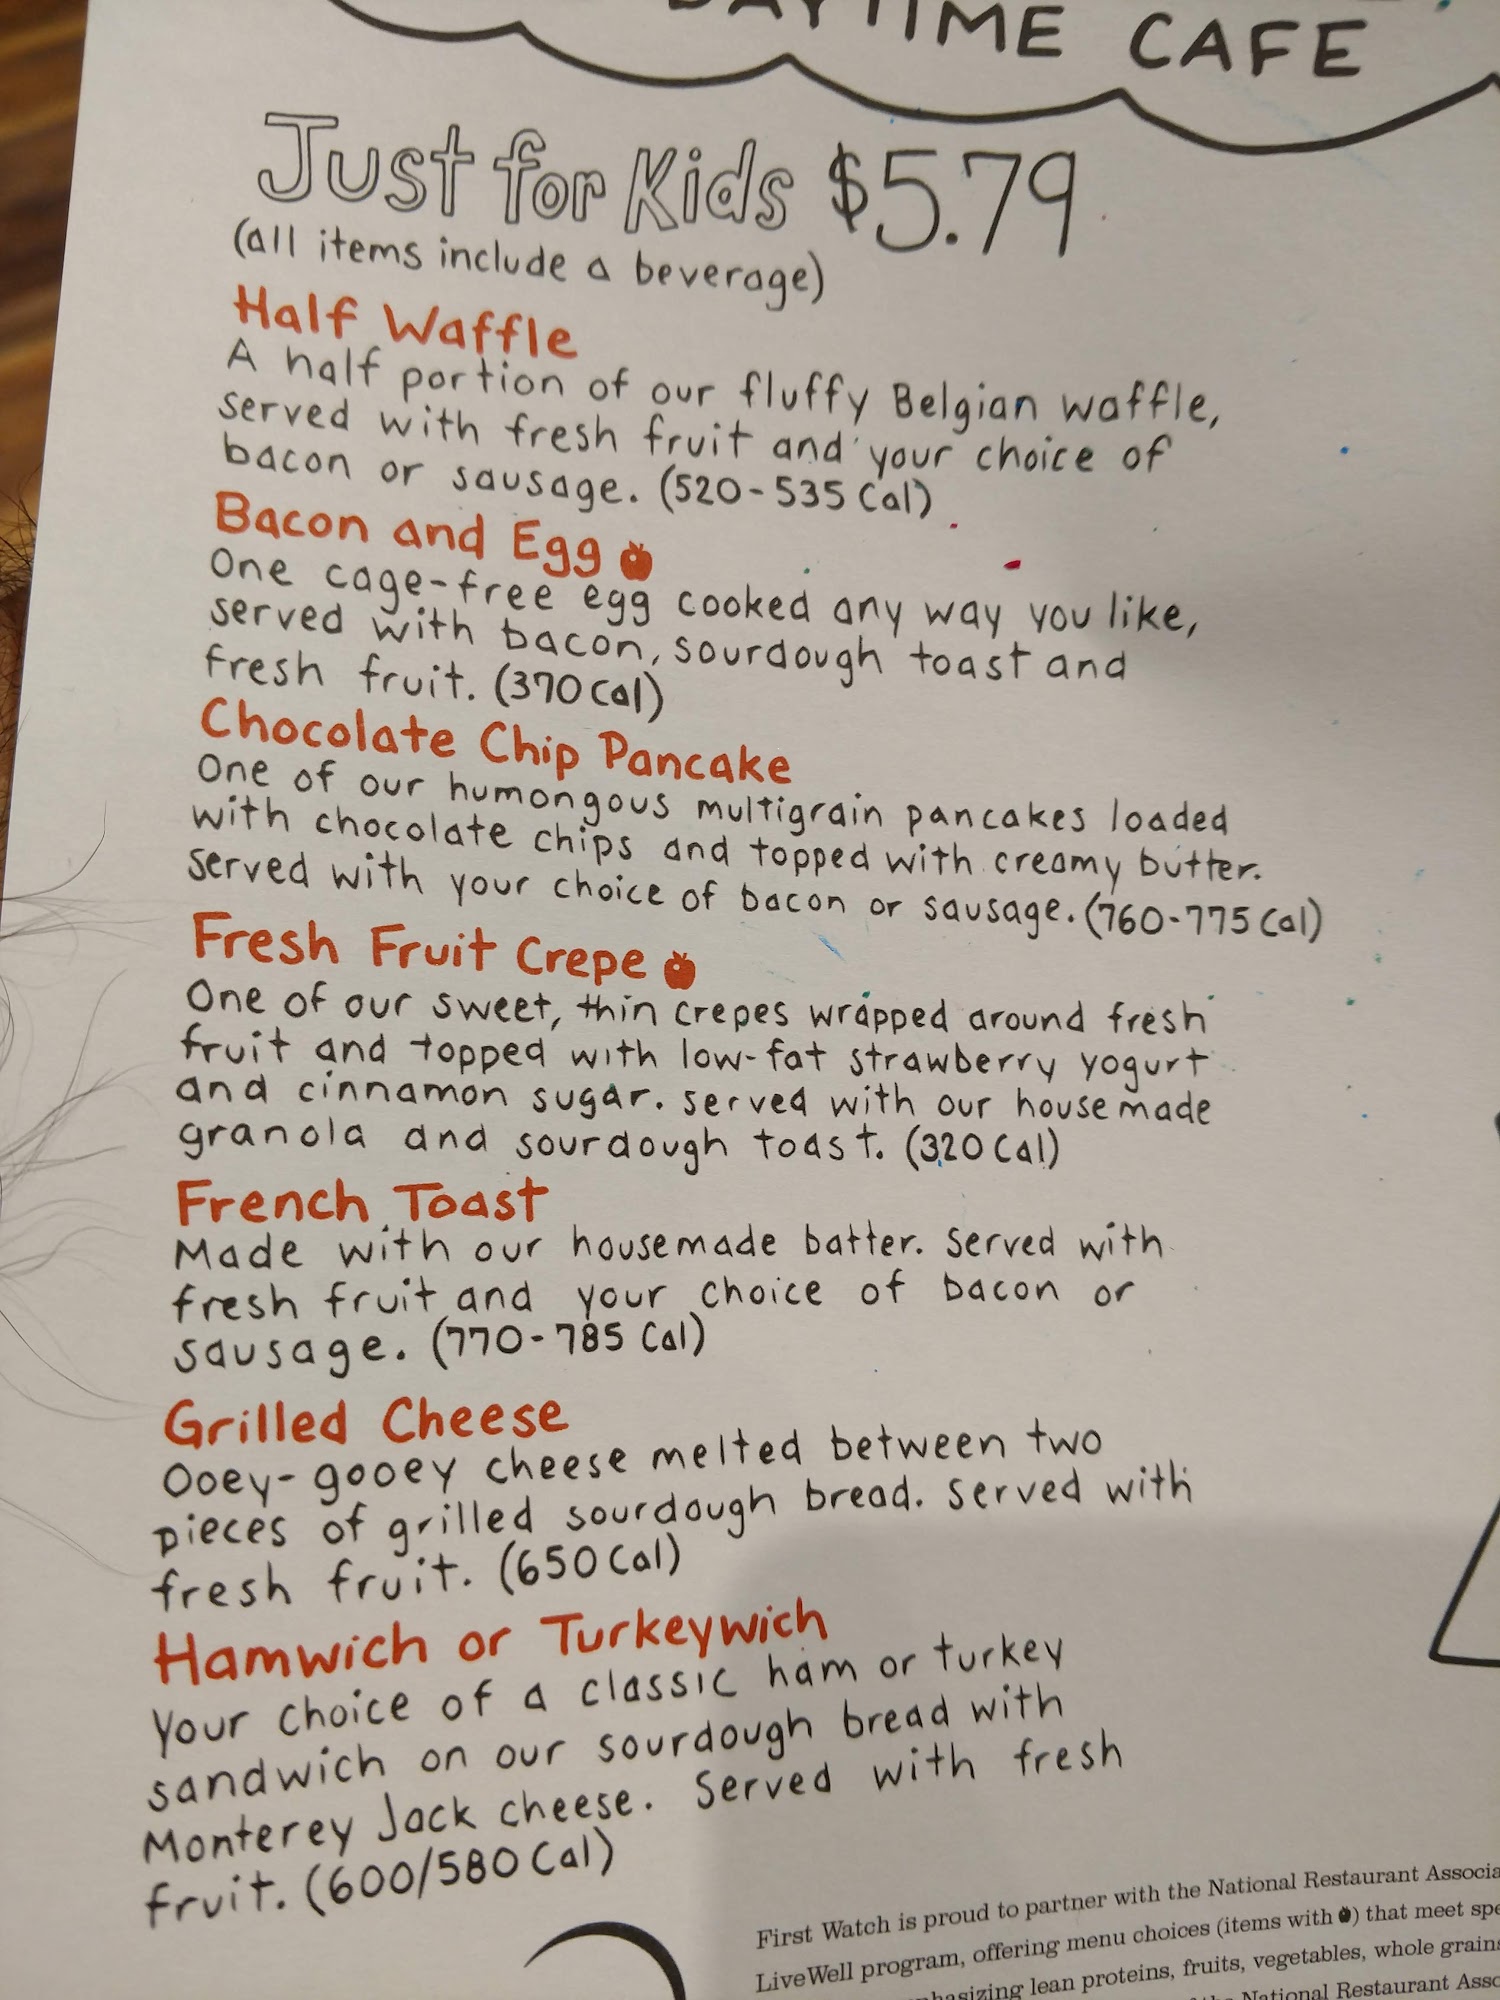 DAYTIME CAFE
Just for Kids $5.79
(all items include a beverage)
Half Waffle
A half portion of our fluffy Belgian waffle,
served with fresh fruit and your choice of
bacon or sausage. (520-535 Cal)
Bacon and Egg
One cage-free egg cooked any way you like,
served with bacon, sourdough toast and
fresh fruit. (370 Cal)
Chocolate Chip Pancake
One of our humongous multigrain pancakes loaded
with chocolate chips and topped with creamy butter.
Served with your choice of bacon or sausage. (760-775 Cal)
Fresh Fruit Crepe
One of our sweet, thin crepes wrapped around fresh
fruit and topped with low-fat strawberry yogurt
and cinnamon sugar. Served with our housemade
granola and sourdough toast. (320 Cal)
French Toast
Made with our housemade batter. Served with
fresh fruit and your choice of bacon or
sausage. (770-785 Cal)
Grilled Cheese
Ooey-gooey cheese melted between two
pieces of grilled sourdough bread. Served with
fresh fruit. (650 Cal)
Hamwich or Turkeywich
Your choice of a classic ham or turkey
sandwich on our sourdough bread with
Monterey Jack cheese. Served with fresh
fruit. (600/580 Cal)
First Watch is proud to partner with the National Restaurant
LiveWell program, offering menu choices (items with ) that meet
lean proteins, fruits, vegetables, whole
National Restaurant